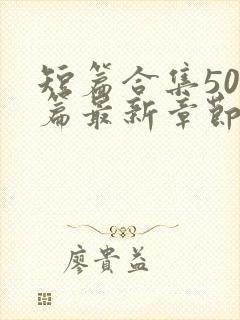 短篇合集50
篇最新章節
廖貴益